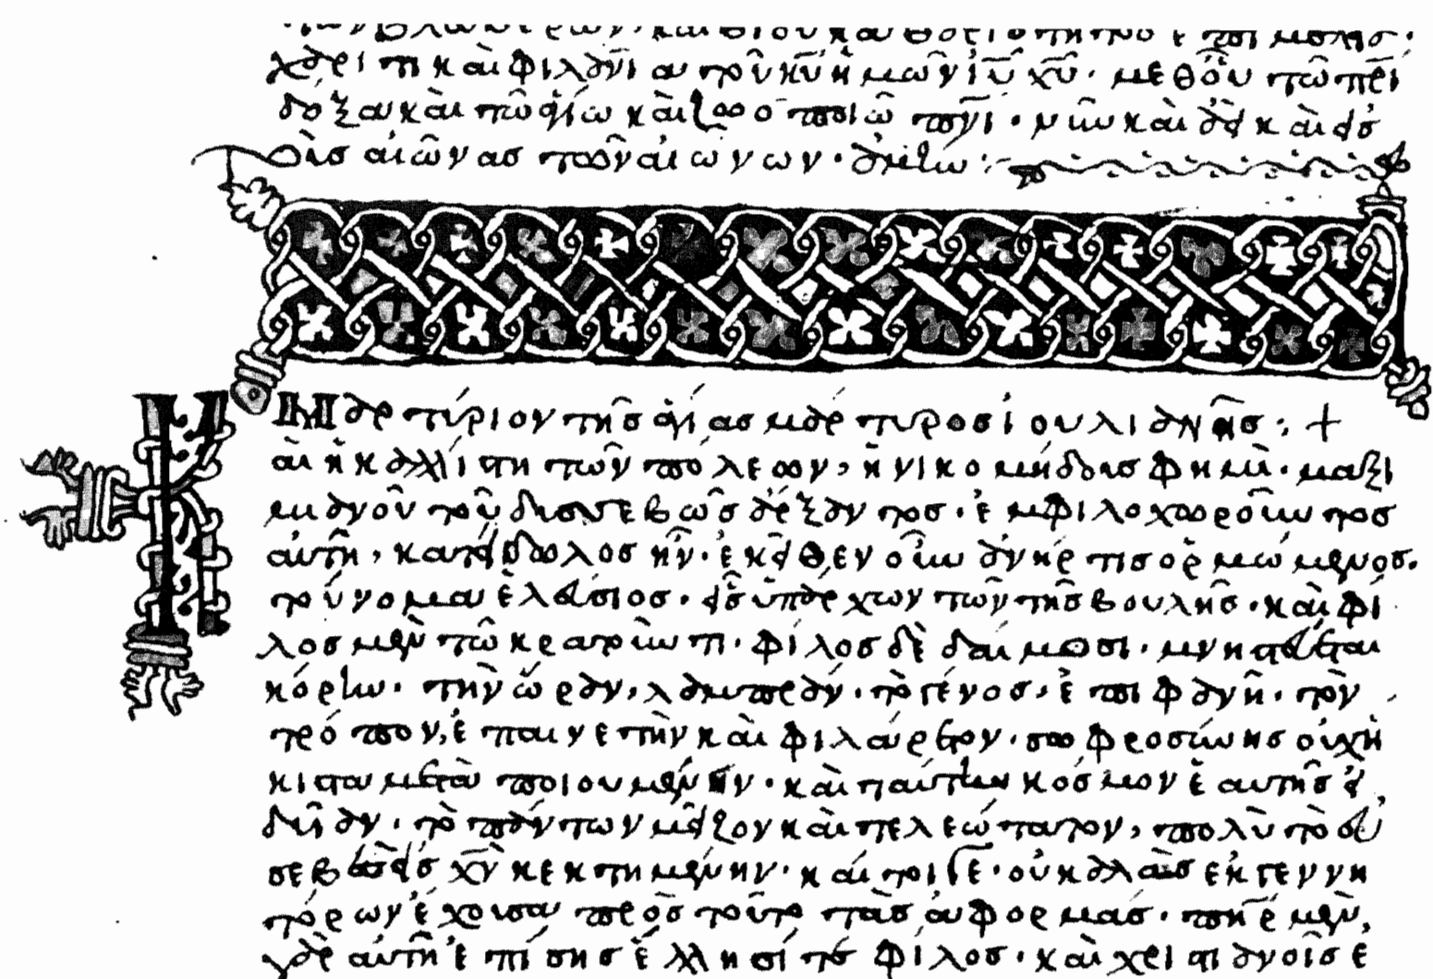 χάριτι καὶ φιλανίᾳ τοῦ κῡ ἡμῶν ἰῡ χῡ· μεθ' οὗ τῶ πρ̅ι
δόξα καὶ τῶ ἁγίω καὶ ζωοποιῶ πν̅ι· νῦν καὶ ἀεὶ καὶ εἰς
τοὺς αἰῶνας τῶν αἰώνων· ἀμήν:
Μαρτύριον τῆς ἁγίας μάρτυρος ἰουλιανῆς: +
Καὶ ἡ καλλίστη τῶν πόλεων, ἡ νικομήδους φημὶ· μαξι
τοῦ δυσσεβῶς ἄρξαντος· ἐμφιλοχωροῦντος
αὐτῆ, κατείδωλος ἦν· ἐκεῖθεν οὖν ἀνήρ τις ὁρμώμενος·
τοὔνομα ἐλεύσιος· εἷς ὑπάρχων τῶν τῆς βουλῆς· καὶ φί
λος μὲν τῶ κρατοῦντι· φίλος δὲ δαίμοσι· μνηστεύεται
κόρην· τὴν ὥραν, λαμπράν· τὸ γένος, ἐπιφανῆ· τὸν
τρόπον, ἐπαινετὴν καὶ φιλάρετον· σωφροσύνης οὐχ ἥ
κιστα μεταποιουμένην· καὶ πάντων κόσμον ἑαυτῆς εἰ
δυῖαν· τὸ πάντων μεῖζον καὶ τελεώτατον, πολὺ τὸ εὐ
σεβὲς εἰς χ̅ν κεκτημένην· καί τοι γε· οὐκ ἐκ γεννη
τόρων ἔχουσα πρὸς τοῦτο τὰς ἀφορμάς· πη̅ρ μὲν,
γὰρ αὐτῆ ἐπίσης ἕλλησί τε φίλος· καὶ χριστιανοῖς ἐ